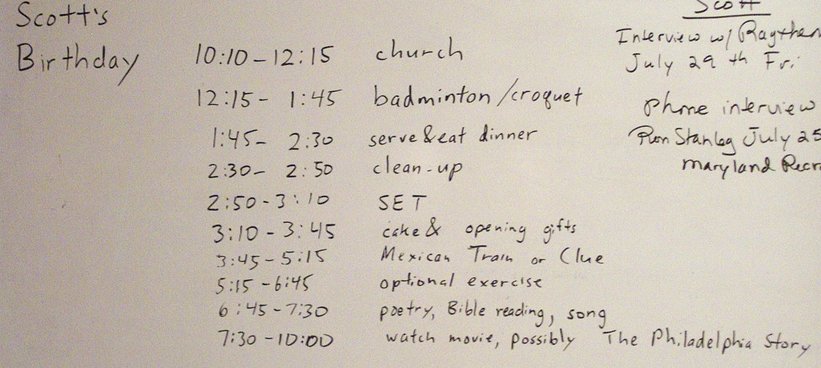 Scott's
Birthday
10:10-12:15 church
12:15- 1:45 badminton/croquet
1:45- 2:30 serve & eat dinner
2:30- 2:50 clean-up
2:50-3:10 SET
3:10-3:45 cake & opening gifts
3:45-5:15 Mexican Train or Clue
5:15-6:45 optional exercise
6:45-7:30 poetry, Bible reading, song
7:30-10:00 watch movie, possibly The Philadelphia Story
Scott
Interview w/
July 29th Fri.
phone interview
Ron Stanley July 25
Maryland